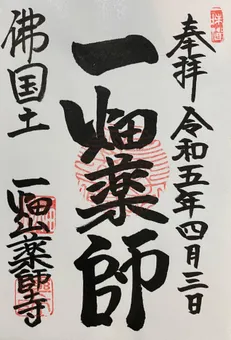 奉拝 令和五年四月三日
一畑薬師
佛国土 一畑山薬師寺